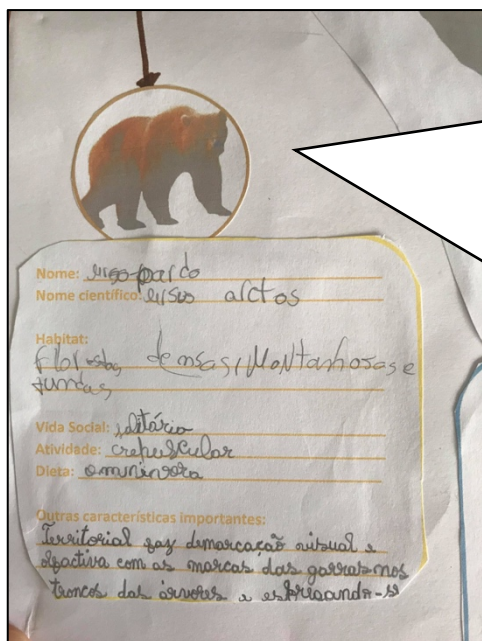 Nome: urso-pardo
Nome científico: ursus arctos
Habitat:
Florestas densas, Montanhosas e
tundas
Vida Social: solitário
Atividade: crepuscular
Dieta: omnívora
Outras características importantes:
Territorial faz demarcação visual e
olfactiva com as marcas das garras nos
troncos das árvores e